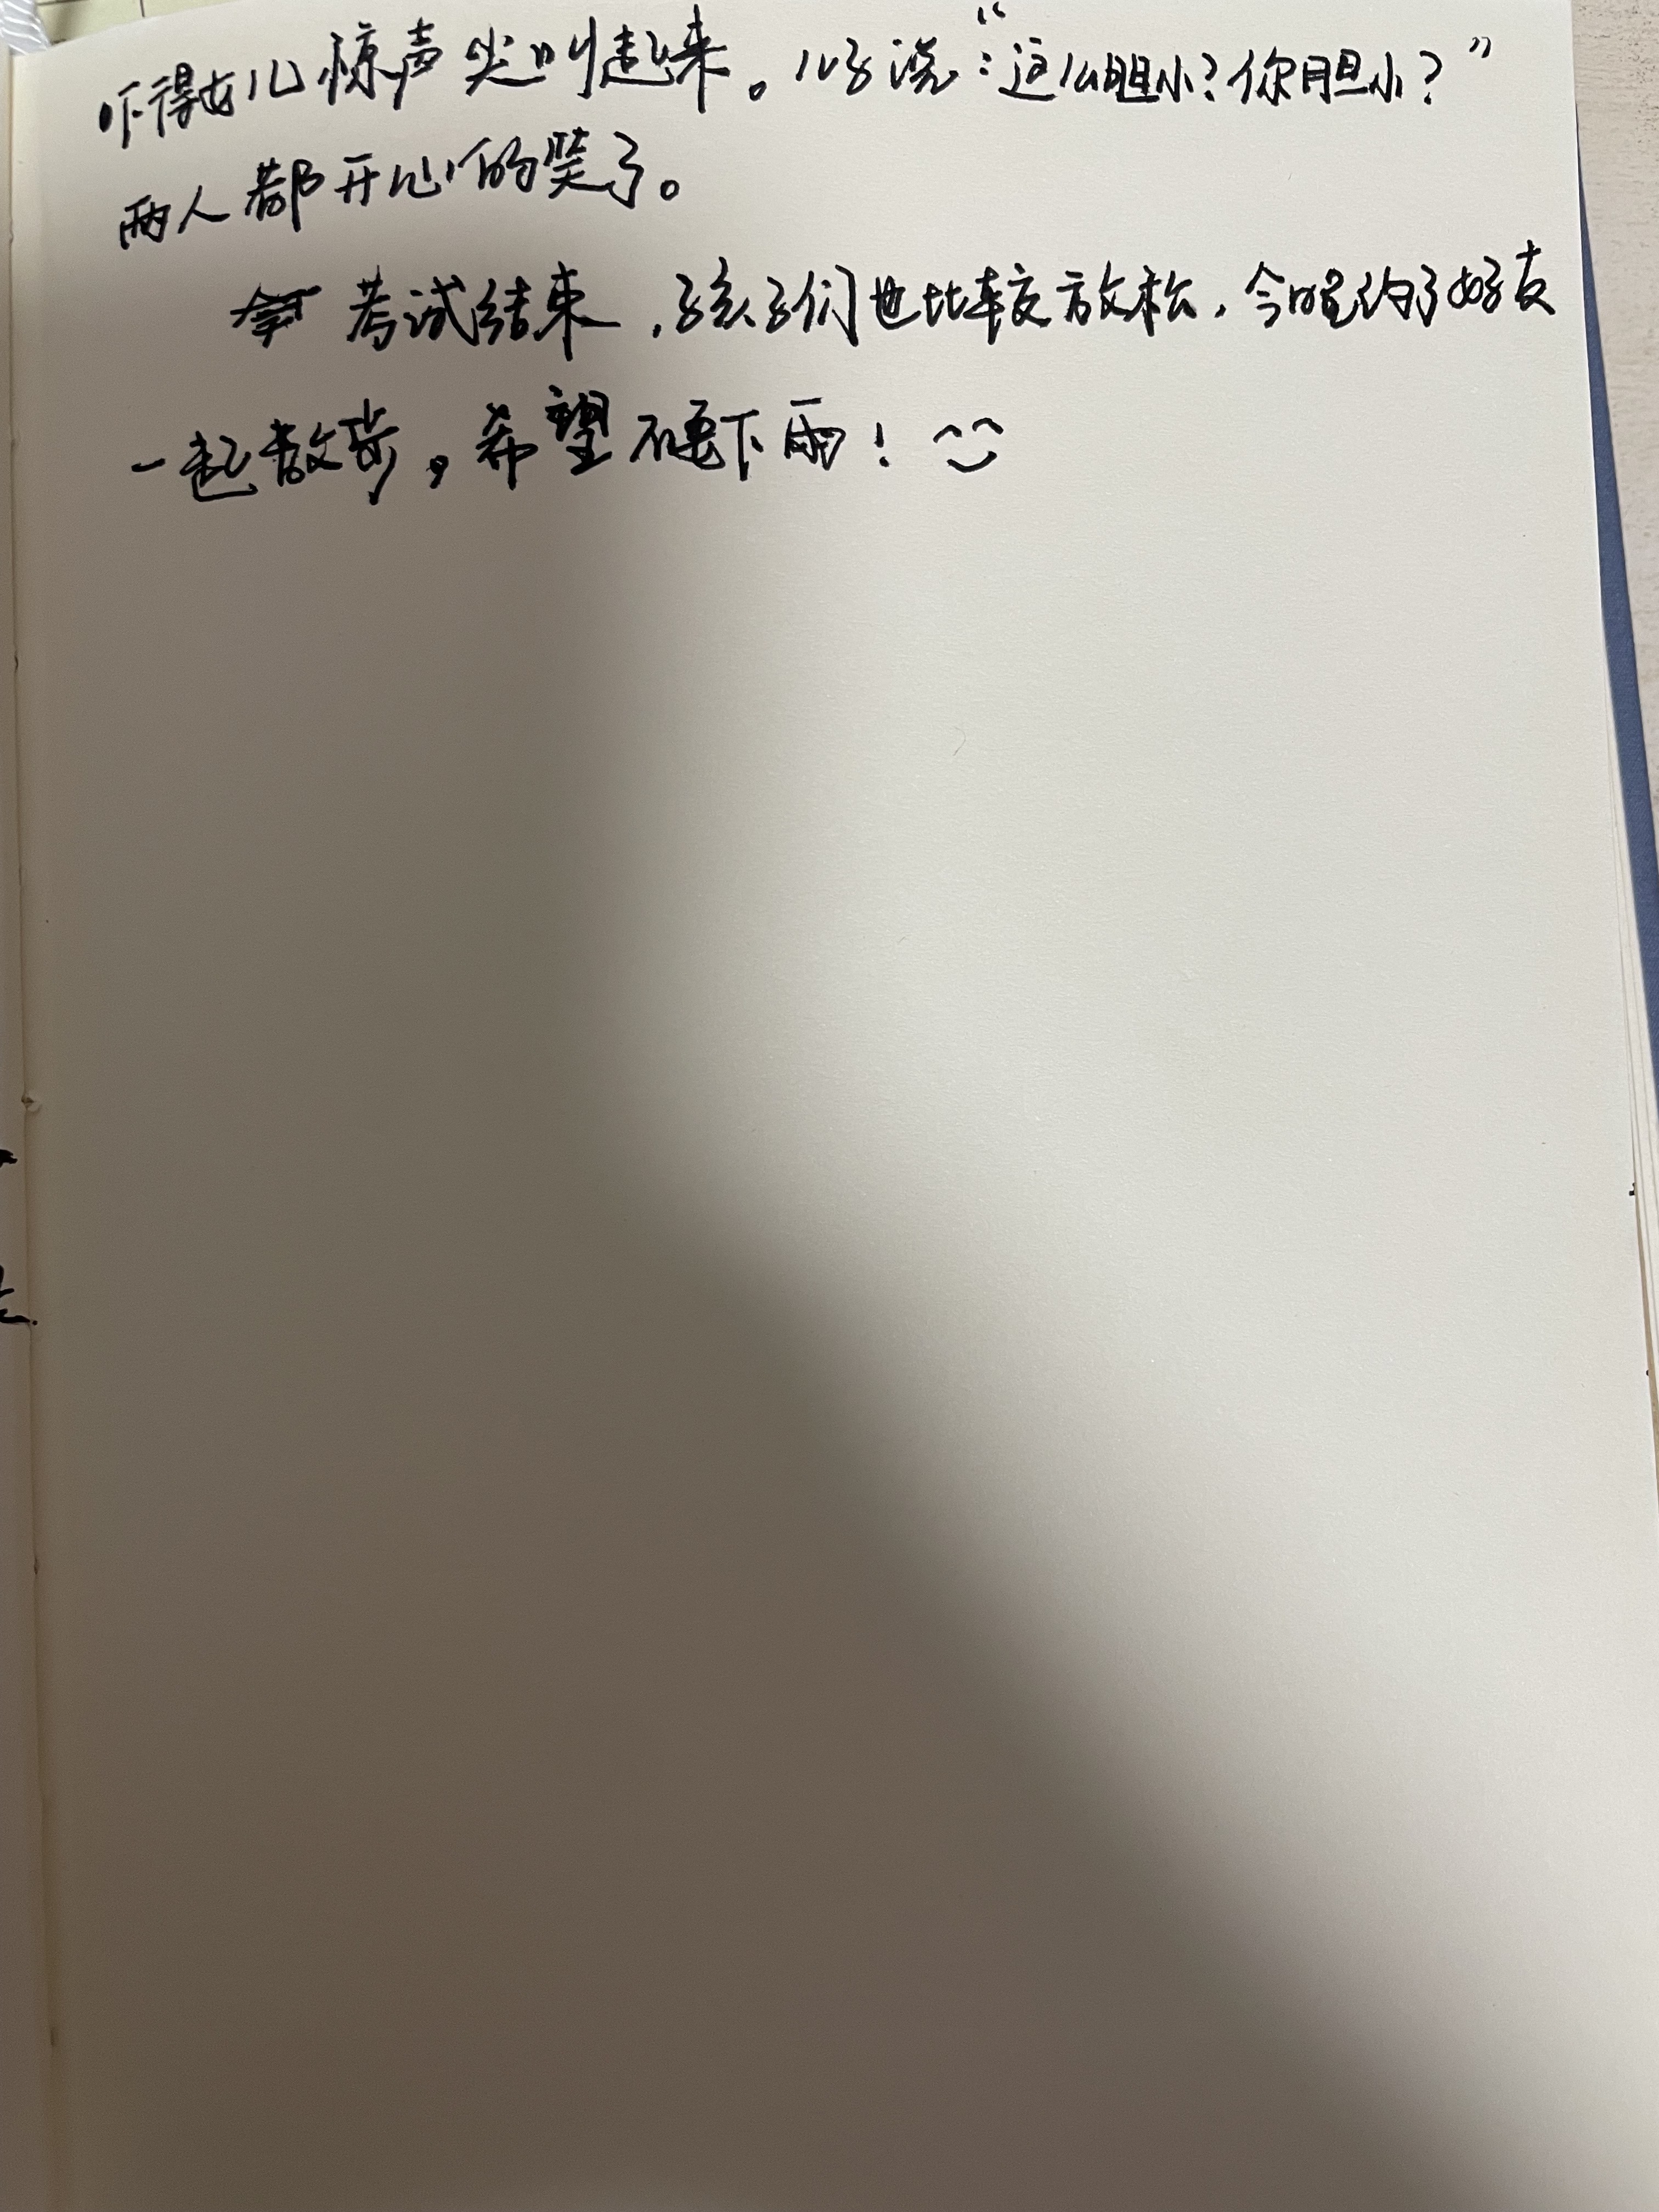 吓得女儿惊声尖叫起来。儿子说：“这么胆小？你胆小？”
两人都开心的笑了。
考试结束，孩子们也比较放松，今晚约了好友
一起散步，希望不要下雨！